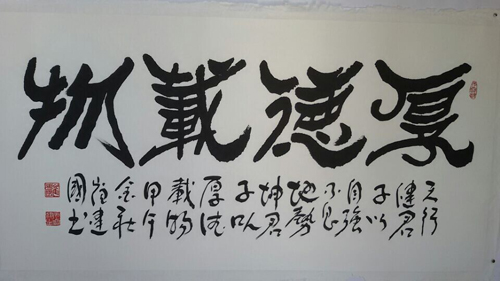 厚德載物
天行
健君
子以
自強
不息
地勢
坤君
子以
厚德
載物
甲午
金秋
崔建
國书